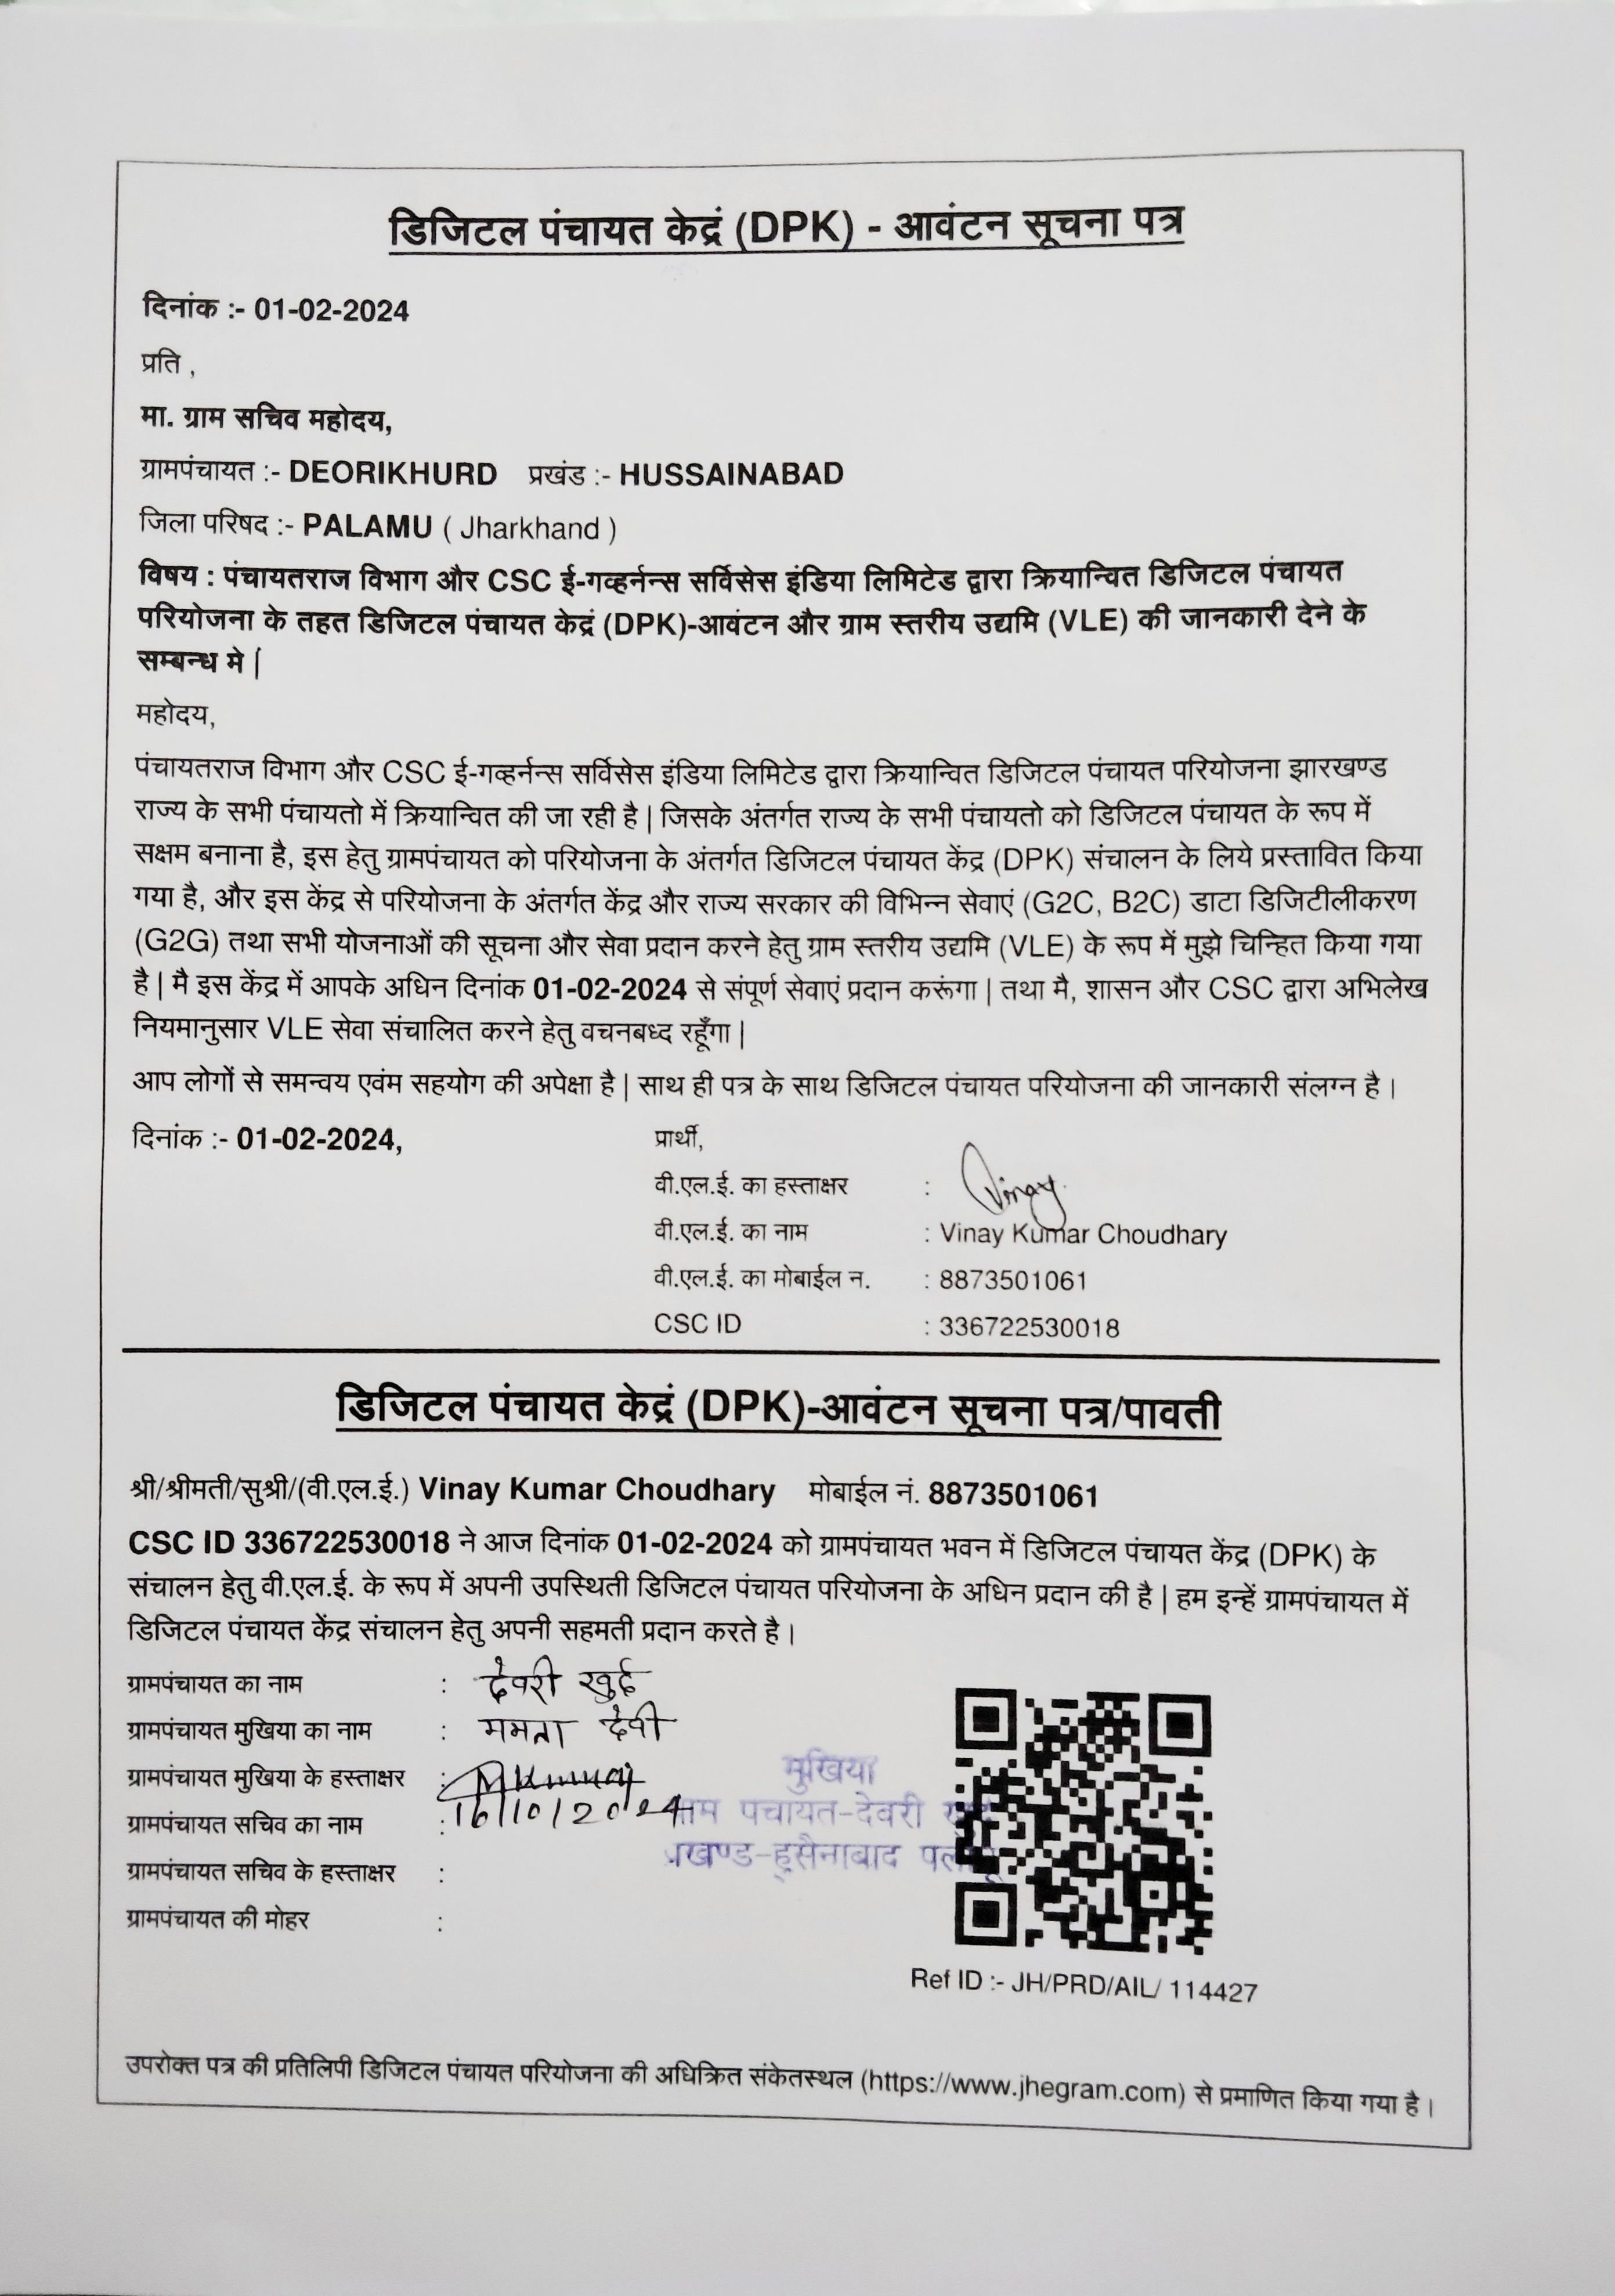 डिजिटल पंचायत केद्रं (DPK) - आवंटन सूचना पत्र
दिनांक :- 01-02-2024
प्रति ,
मा. ग्राम सचिव महोदय,
ग्रामपंचायत :- DEORIKHURD प्रखंड :- HUSSAINABAD
जिला परिषद :- PALAMU ( Jharkhand )
विषय : पंचायतराज विभाग और CSC ई-गव्हर्नन्स सर्विसेस इंडिया लिमिटेड द्वारा क्रियान्वित डिजिटल पंचायत
परियोजना के तहत डिजिटल पंचायत केद्रं (DPK)-आवंटन और ग्राम स्तरीय उद्यमि (VLE) की जानकारी देने के
सम्बन्ध मे |
महोदय,
पंचायतराज विभाग और CSC ई-गव्हर्नन्स सर्विसेस इंडिया लिमिटेड द्वारा क्रियान्वित डिजिटल पंचायत परियोजना झारखण्ड
राज्य के सभी पंचायतो में क्रियान्वित की जा रही है | जिसके अंतर्गत राज्य के सभी पंचायतो को डिजिटल पंचायत के रूप में
सक्षम बनाना है, इस हेतु ग्रामपंचायत को परियोजना के अंतर्गत डिजिटल पंचायत केंद्र (DPK) संचालन के लिये प्रस्तावित किया
गया है, और इस केंद्र से परियोजना के अंतर्गत केंद्र और राज्य सरकार की विभिन्न सेवाएं (G2C, B2C) डाटा डिजिटीलीकरण
(G2G) तथा सभी योजनाओं की सूचना और सेवा प्रदान करने हेतु ग्राम स्तरीय उद्यमि (VLE) के रूप में मुझे चिन्हित किया गया
है | मै इस केंद्र में आपके अधिन दिनांक 01-02-2024 से संपूर्ण सेवाएं प्रदान करूंगा | तथा मै, शासन और CSC द्वारा अभिलेख
नियमानुसार VLE सेवा संचालित करने हेतु वचनबध्द रहूँगा |
आप लोगों से समन्वय एवंम सहयोग की अपेक्षा है | साथ ही पत्र के साथ डिजिटल पंचायत परियोजना की जानकारी संलग्न है ।
दिनांक :- 01-02-2024,
प्रार्थी,
वी.एल.ई. का हस्ताक्षर : Vinay
वी.एल.ई. का नाम : Vinay Kumar Choudhary
वी.एल.ई. का मोबाईल न. : 8873501061
CSC ID : 336722530018
डिजिटल पंचायत केद्रं (DPK)-आवंटन सूचना पत्र/पावती
श्री/श्रीमती/सुश्री/(वी.एल.ई.) Vinay Kumar Choudhary मोबाईल नं. 8873501061
CSC ID 336722530018 ने आज दिनांक 01-02-2024 को ग्रामपंचायत भवन में डिजिटल पंचायत केंद्र (DPK) के
संचालन हेतु वी.एल.ई. के रूप में अपनी उपस्थिती डिजिटल पंचायत परियोजना के अधिन प्रदान की है | हम इन्हें ग्रामपंचायत में
डिजिटल पंचायत केंद्र संचालन हेतु अपनी सहमती प्रदान करते है ।
ग्रामपंचायत का नाम : देवरी खुर्द
ग्रामपंचायत मुखिया का नाम : ममता देवी
ग्रामपंचायत मुखिया के हस्ताक्षर :
16/10/2024
ग्रामपंचायत सचिव का नाम :
ग्रामपंचायत सचिव के हस्ताक्षर :
ग्रामपंचायत की मोहर :
मुखिया
ग्राम पंचायत-देवरी खुर्द
प्रखण्ड-हुसैनाबाद पलामू
Ref ID :- JH/PRD/AIL/ 114427
उपरोक्त पत्र की प्रतिलिपी डिजिटल पंचायत परियोजना की अधिक्रित संकेतस्थल (https://www.jhegram.com) से प्रमाणित किया गया है ।